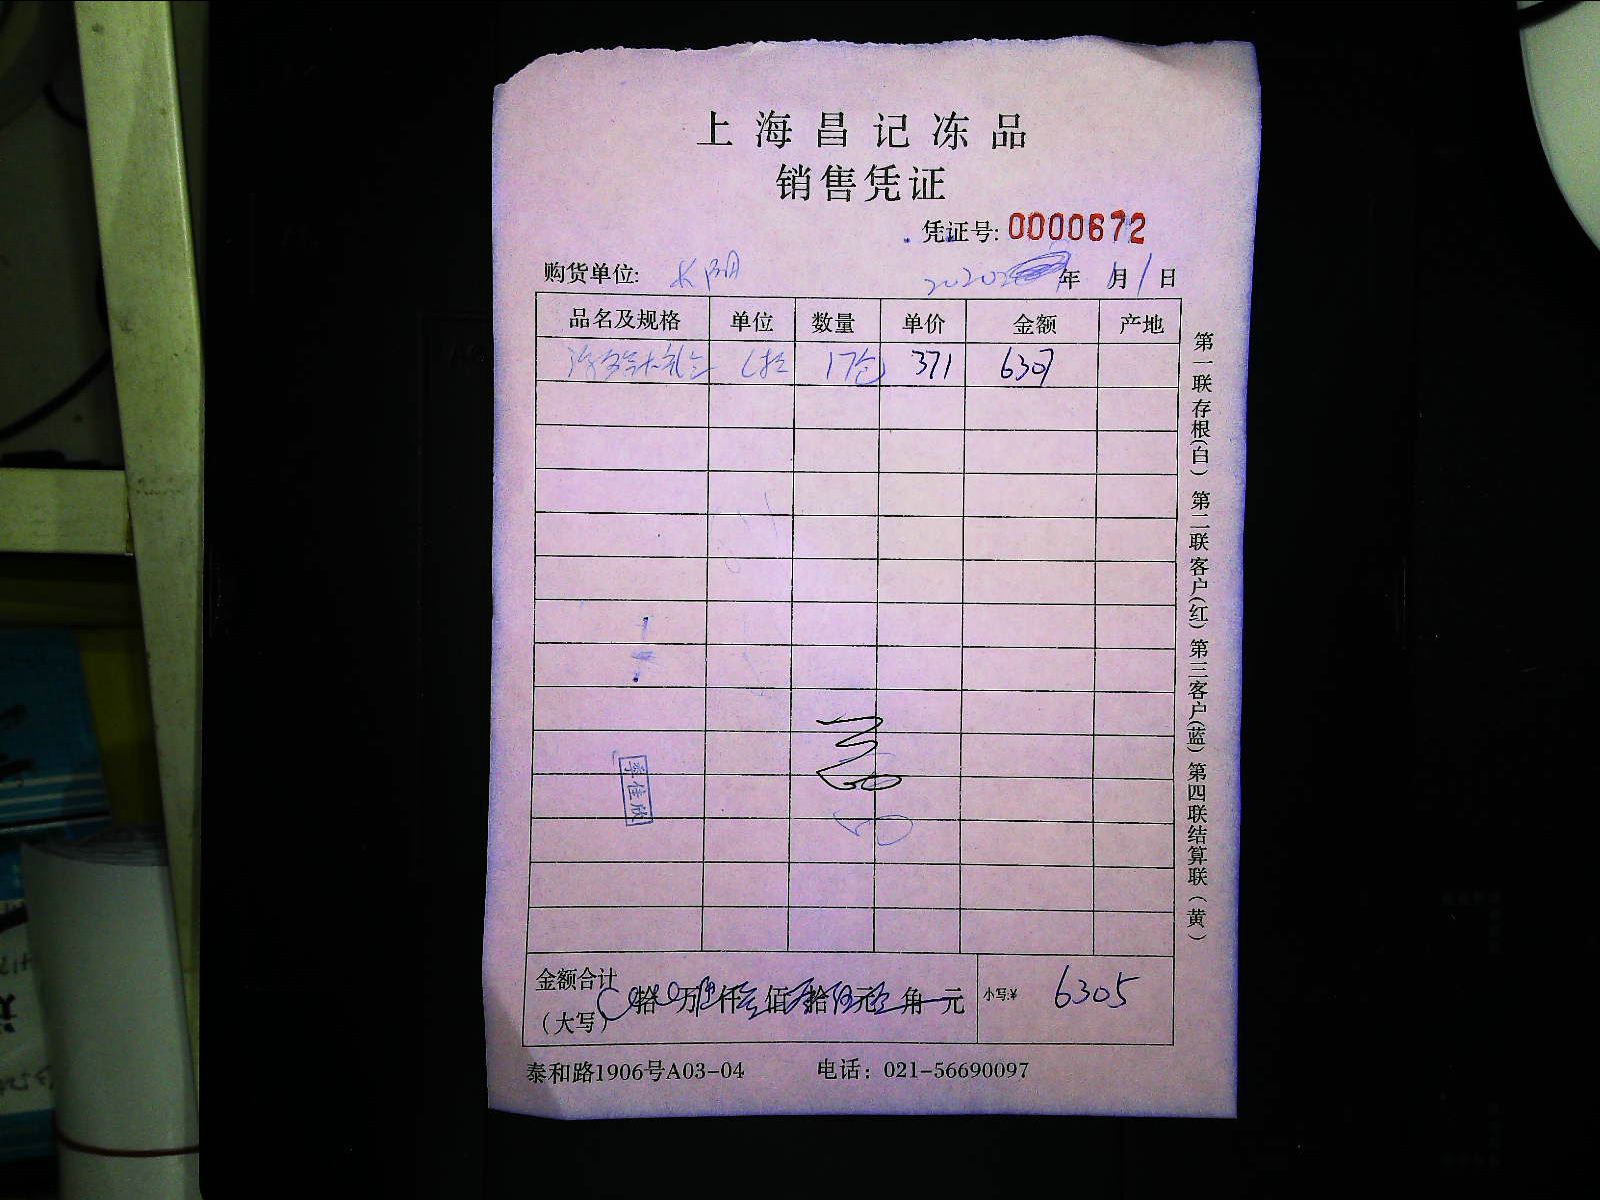 上海昌记冻品
销售凭证
凭证号: 0000672
购货单位: 长阴 年 1月1日
品名及规格 单位 数量 单价 金额 产地
17 371 6307
季佳欣
金额合计
(大写) 拾 万 仟 佰 拾 元 角 元 小写:¥ 6305
泰和路1906号A03-04 电话: 021-56690097
第一联存根(白) 第二联客户(红) 第三客户(蓝) 第四联结算联(黄)